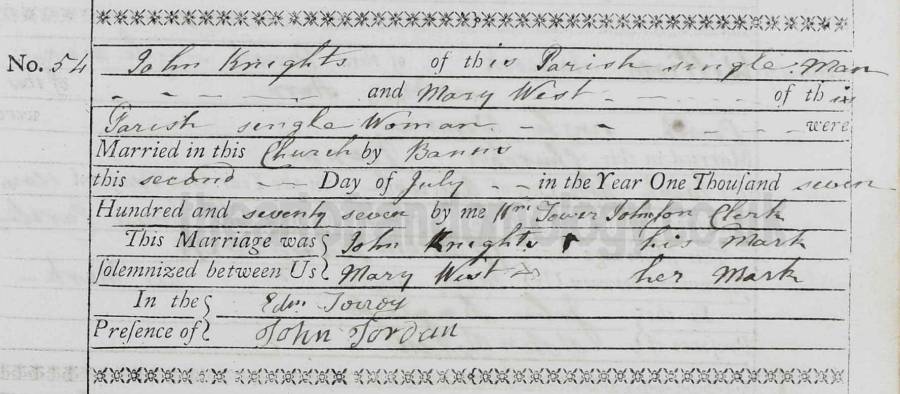 No. 54 John Knights of this Parish single Man
- - - - - and Mary West - - - - of this
Parish single Woman. - - - - - were
Married in this Church by Banns
this second - - Day of July - - in the Year One Thousand seven
Hundred and seventy seven by me Wm Tower Johnſon Clerk
This Marriage was John Knights his Mark
ſolemnized between Us Mary West her Mark
In the Edm.
Preſence of John Jordan